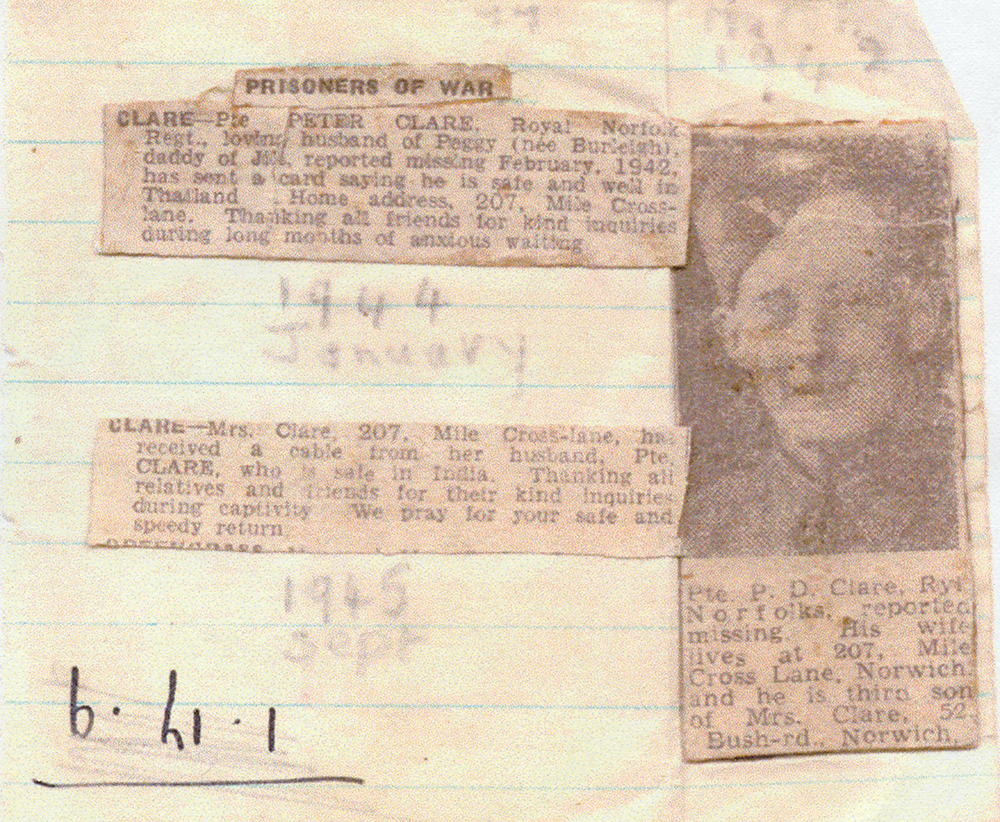 1942
PRISONERS OF WAR
CLARE—Pte PETER CLARE, Royal Norfolk
Regt., loving husband of Peggy (née Burleigh),
daddy of Jill, reported missing February, 1942,
has sent a card saying he is safe and well in
Thailand. Home address, 207, Mile Cross-
lane. Thanking all friends for kind inquiries
during long months of anxious waiting
1944
January
CLARE—Mrs. Clare, 207, Mile Cross-lane, has
received a cable from her husband, Pte.
CLARE, who is safe in India. Thanking all
relatives and friends for their kind inquiries
during captivity We pray for your safe and
speedy return
1945
Sept
Pte. P. D. Clare, Ryl
Norfolks, reported
missing. His wife
lives at 207, Mile
Cross Lane, Norwich,
and he is third son
of Mrs. Clare, 52,
Bush-rd., Norwich.